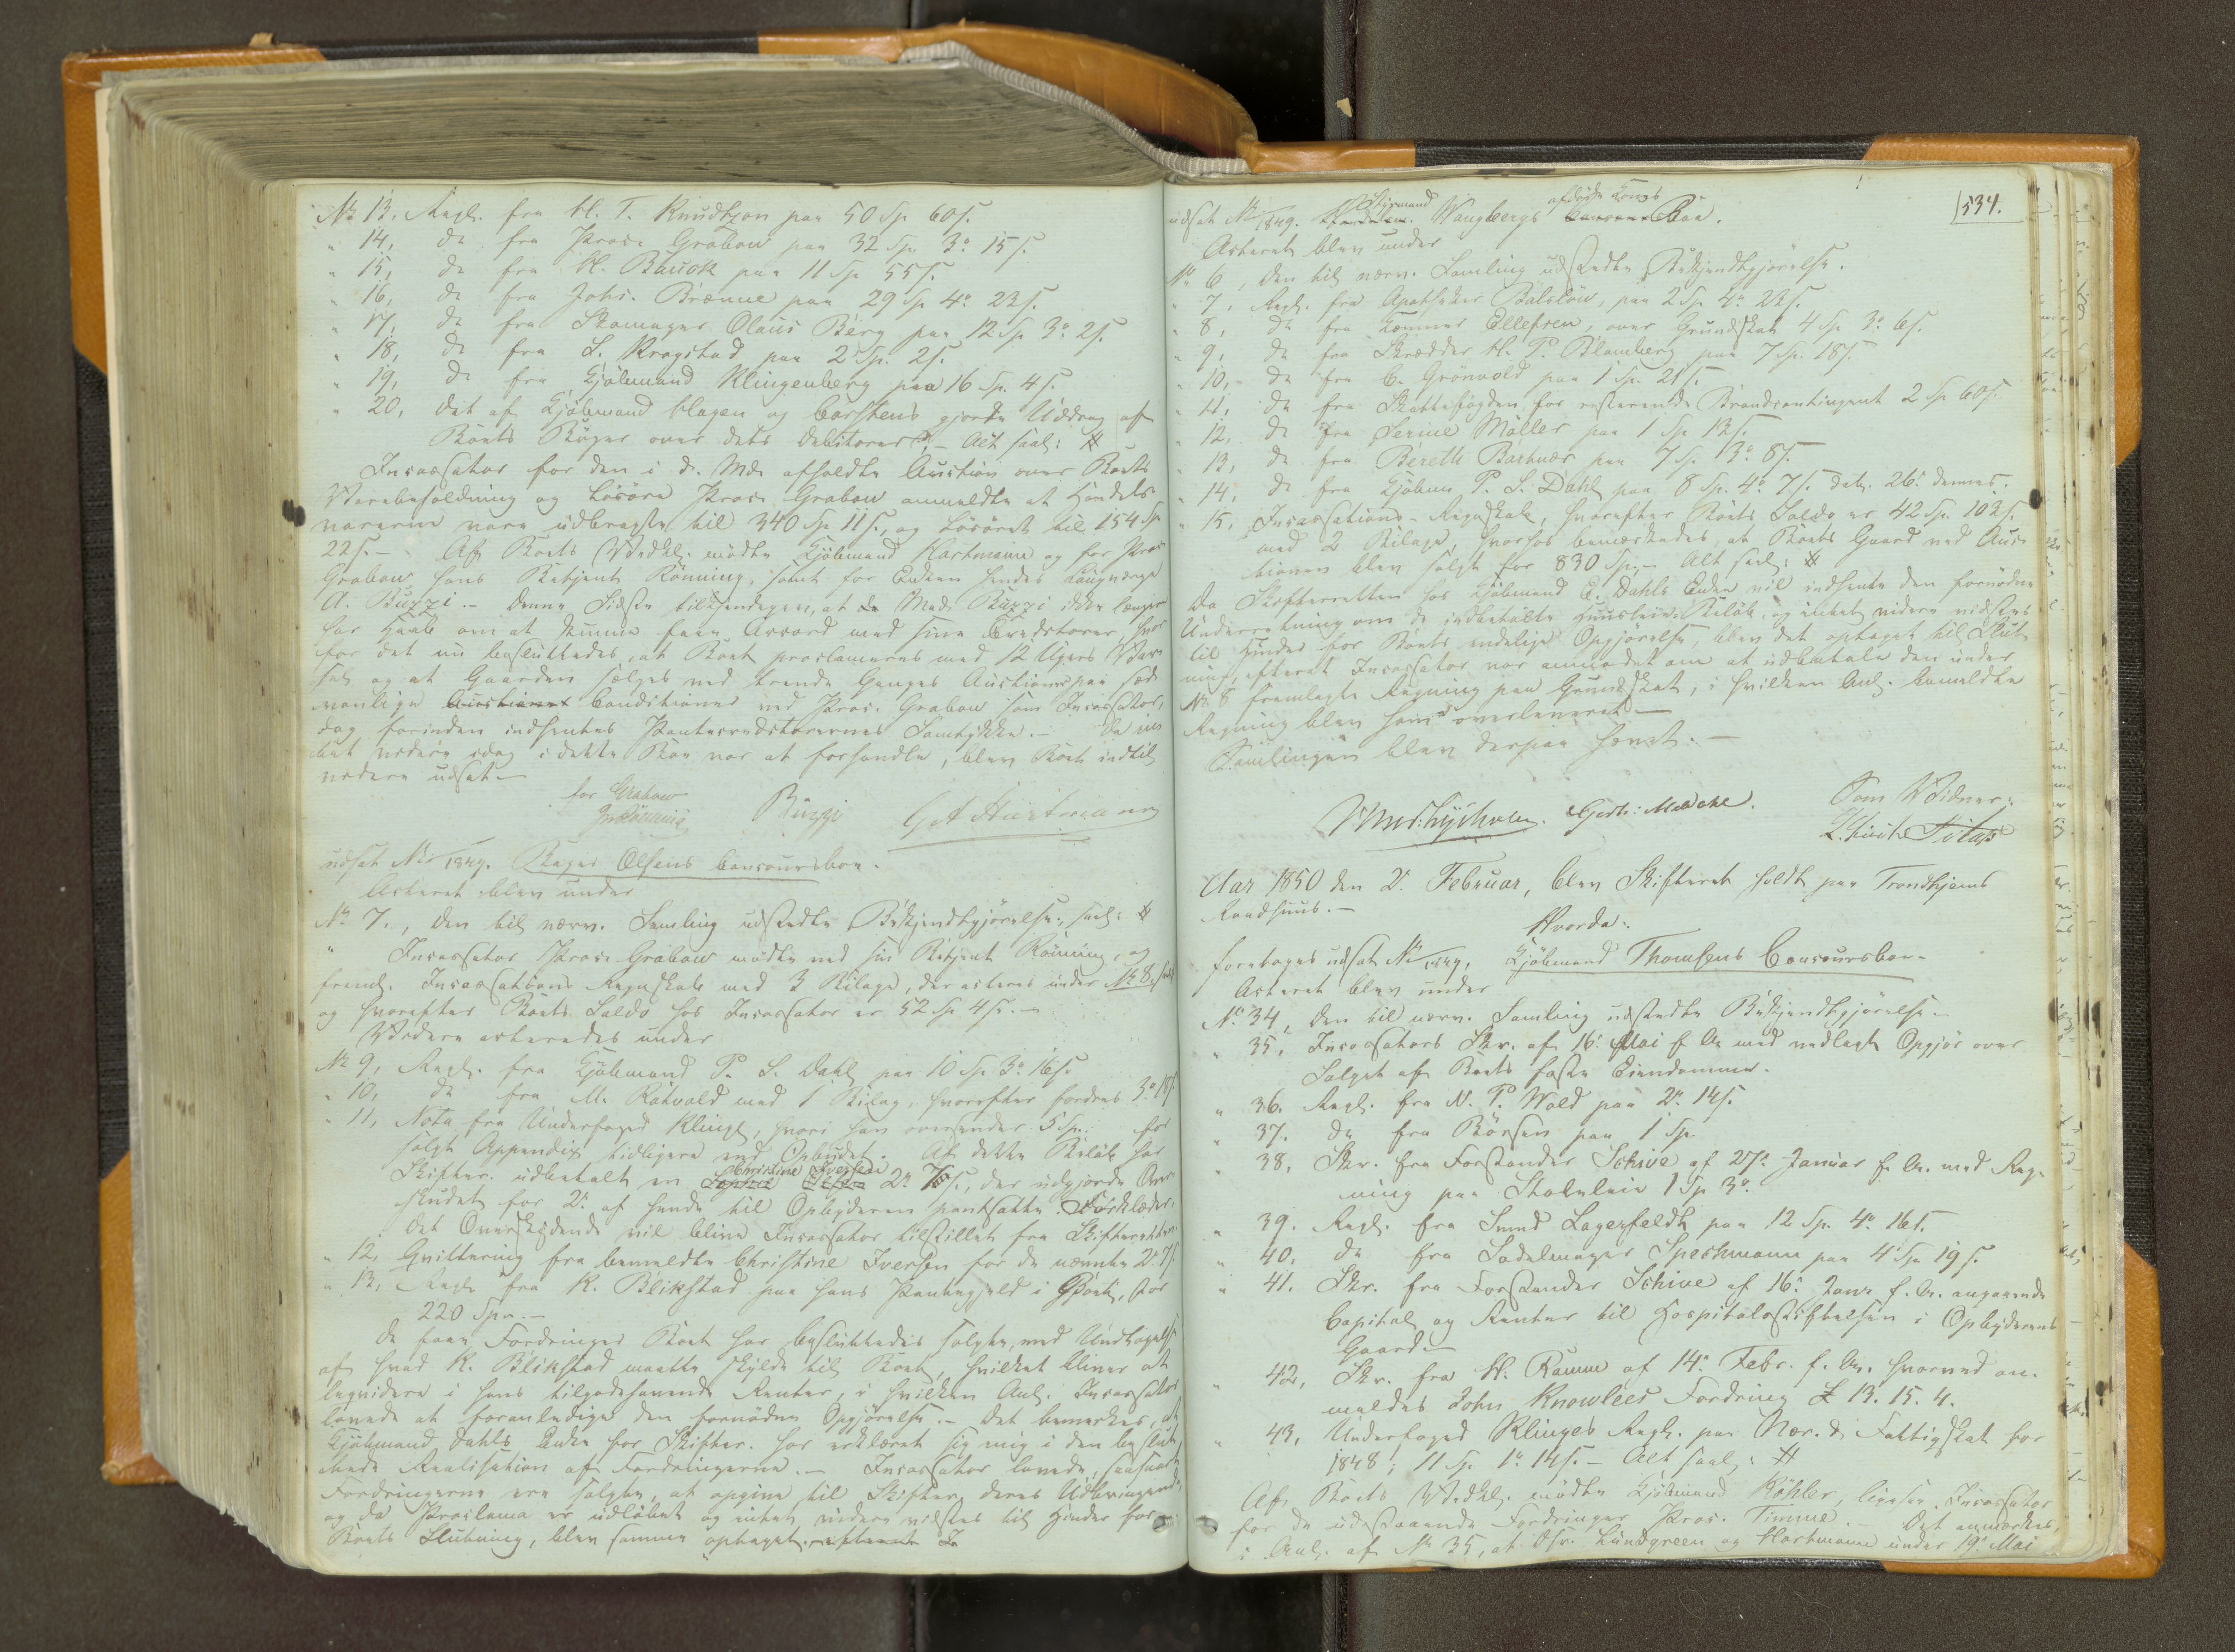 No 13, Regh. fra H. T. Knudtzon paa 50 Sp 60 s.
" 14, do fra Proc. Grabow paa 32 Sp. 3 o 15 s.
" 15, do fra H. Bauck paa 11 Sp 55 s.
" 16, do fra Johs. Brænne paa 29 Sp 4 o 22 s.
" 17, do fra Skomager Olaus Berg paa 12 Sp 3 o 2 s.
" 18, do fra L. Krogstad paa 2 Sp. 2 s.
" 19, do fra Kjøbmand Klingenberg paa 16 Sp. 4 s.
" 20, det af Kjøbmand Clagen og Carstens gjorde Uddrag af
Boets Bøger over dets Debitorer. – Alt saal:
Incassator for den i d. Md. afholdte Auction over Boets
Varebeholdning og Løsøre Proc. Grabow anmeldte at Handels-
varerne vare udbragte til 340 Sp 11 s., og Løsøret til 154 Sp
22 s. – Af Boets Vedk. mødte Kjøbmand Hartmann og for Proc.
Grabow hans Betjent Rönning, samt for Enken hendes Laugværge
A. Buzzi. – Denne Sidste tilkjendegav, at Mad. Buzzi ikke længer
har Haab om at kunne faae Accord med sine Creditorer, hvor-
for det nu besluttedes, at Boet proclameres med 12 Ugers Var-
sel og at Gaarden sælges ved trende Ganges Auctioner paa sæd-
vanlige Conditioner ved Proc. Grabow som Incassator,
dog forinden indhentes Panteecreditorernes Samtykke. – Da in-
tet videre idag i dette Boe var at forhandle, blev Boet indtil
videre udsat –
for Grabow
Rönning Buzzi G A Hartmann
udsat No /1849. Bager Olsens Concursboe.
Acteret blev under
No 7., den til nærv. Samling udstedte Bekjendtgjørelse, saal:
" Incassator Proc. Grabow mødte ved sin Betjent Rönning, og
freml. Incassations Regnskab med 3 Bilage, der acteres under No 8,
og hvorefter Boets Saldo hos Incassator er 52 Sp 4 s. –
Videre acteredes under
No 9, Regh. fra Kjøbmand P. S. Dahl paa 10 Sp 3 o 16 s.
" 10, do fra M. Rotvold med 1 Bilag, hvorefter fordres 3 o 18 s
" 11, Nota fra Underfoged Klinge, hvori han oversender 5 Sp. for
solgt Appendix tidligere ved Opbudet. Af dette Beløb har
Skifter. udbetalt en Christine Iversen 2 o 7 s., der udgjorde Over-
skudet for 2 af hende til Opbyderen pantsatte Forklæder.
Det Overskydende vil blive Incassator tilstillet fra Skifteretten
" 12, Qvittering fra bemeldte Christine Iversen for de nævnte 2 o 7 s
" 13, Regh. fra K. Blikstad paa hans Pantegjeld i Boet, stor
220 Spd. –
De faae Fordringer Boet har besluttedes solgte, med Undtagelse
af hvad K. Blikstad maatte skylde til Boet, hvilket bliver at
liqvidere i hans tilgodehavende Renter, i hvilken Anl. Incassator
lovede at foranledige den fornødne Opgjørelse. – Det bemærkes, at
Kjøbmand Dahls Enke for Skifter. har erklæret sig enig i den beslut-
tede Realisation af Fordringerne. – Incassator lovede, saasnart
Fordringerne ere solgte, at opgive til Skifter. deres Udbringende,
og da Proclama er udløbet og intet videre vidstes til Hinder for
Boets Slutning, blev samme optaget.
534.
udsat No /1849. Styrmand Wangbergs afdøde Kones Boe.
Acteret blev under
No 6, den til nærv. Samling udstedte Bekjendtgjørelse.
" 7, Regh. fra Apotheker Balslöw, paa 2 Sp 4 o 22 s.
" 8, do fra Kæmner Ellefsen, over Grundskat 4 Sp 3 o 6 s.
" 9, do fra Skrædder H. P. Blomberg paa 7 Sp. 18 s.
" 10, do fra C. Grönvold paa 1 Sp. 21 s.
" 11, do fra Skattefogden for resterende Brandcontingent 2 Sp 60 s.
" 12, do fra Serine Möller paa 1 Sp 12 s.
" 13, do fra Bereth Barhues paa 7 Sp. 3 o 8 s.
" 14, do fra Kjøbm. P. S. Dahl paa 8 Sp. 4 o 7 s. dat. 26 dennes.
" 15, Incassations-Regnskab, hvorefter Boets Saldo er 42 Sp. 102 s.
med 2 Bilage, hvorhos bemærkedes, at Boets Gaard ved Auc-
tionen blev solgt for 830 Sp. – Alt saal:
Da Skifteretten hos Kjøbmand C. Dahls Enke vil indhente den fornødne
Underretning om de indbetalte Huusleies Beløb, og intet videre vidstes
til Hinder for Boets endelige Opgjørelse, blev det optaget til Slut-
ning, efterat Incassator var anmodet om at udbetale den under
No 8 fremlagte Regning paa Grundskat, i hvilken Anl. bemeldte
Regning blev ham overleveret –
Samlingen blev derpaa hævet. –
Som Vidner:
Aar 1850 den 2. Februar, blev Skifteret holdt paa Trondhjems
Raadhuus. –
Hvorda:
foretoges udsat No /1849, Kjøbmand Thomsens Concursboe.
Acteret blev under
No 34, den til nærv. Samling udstedte Bekjendtgjørelse –
" 35, Incassators Skr. af 16 Mai f. A. med vedlagt Opgjør over
Salget af Boets faste Eiendomme.
" 36. Regh. fra N. P. Wold paa 2 o 14 s.
" 37. do fra Börsen paa 1 Sp.
" 38, Skr. fra Forstander Schive af 27 Januar f. A. med Reg-
ning paa Stoleleie 1 Sp 3 o.
" 39. Regh. fra Smed Lagerfeldt paa 12 Sp. 4 o 16 s.
" 40, do fra Sadelmager Speckmann paa 4 Sp 19 s.
" 41. Skr. fra Forstander Schive af 16 Janr f. A. angaaende
Capital og Renter til Hospitalsstiftelsen i Opbyderens
Gaard –
" 42, Skr. fra H. Ramm af 14 Febr. f. A. hvorved an-
meldes John Knowles Fordring £ 13. 15. 4.
" 43, Underfoged Klinges Regh. paa Nær. & Fattigskat for
1848; 11 Sp 1 o 14 s. – Alt saal:
Af Boets Vedk. mødte Kjøbmand Köhler, ligesaa Incassator
for de udestaaende Fordringer Proc. Timme. Det anmærkes,
i Anl. af No 35, at Lundgreen og Hartmann under 19 Mai